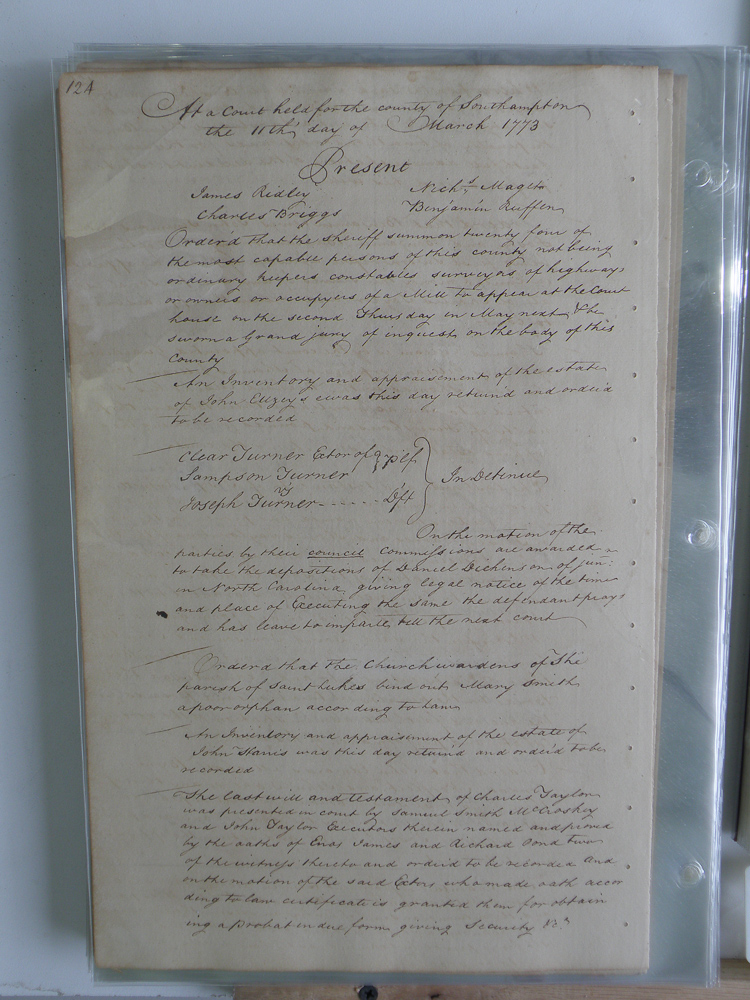 124
At a Court held for the county of Southampton
the 11th day of March 1773
Present
James Ridley Nichs Maget
Charles Briggs Benjamin Ruffin
Order'd that the sheriff summon twenty four of
the most capable persons of this county not being
ordinary keepers constables surveyors of highways
or owners or occupyers of a Mill to appear at the Court
house on the second Thursday in May next & be
sworn a Grand jury of inquest on the body of this
County
An Inventory and appraisement of the estate
of John was this day return'd and order'd
to be recorded
Clear Turner Extor of
Sampson Turner plf
vs In Detinue
Joseph Turner Dft
On the motion of the
parties by their council Commissions are awarded
to take the depositions of Daniel Dickenson of
in North Carolina giving legal notice of the time
and place of Executing the same the defendant prays
and has leave to imparle till the next court
Order'd that the Church wardens of The
parish of Saint Lukes bind out Mary Smith
a poor orphan according to Law
An Inventory and appraisement of the estate of
John Harris was this day return'd and order'd to be
recorded
The last will and testament of Charles Taylor
was presented in court by Samuel Smith McCroskey
and John Taylor Executors therein named and proved
by the oaths of Enos James and Richard Bond two
of the witness thereto and order'd to be recorded And
on the motion of the said Extors who made oath accor
ding to law certificate is granted them for obtain
ing a probat in due form giving Security &c